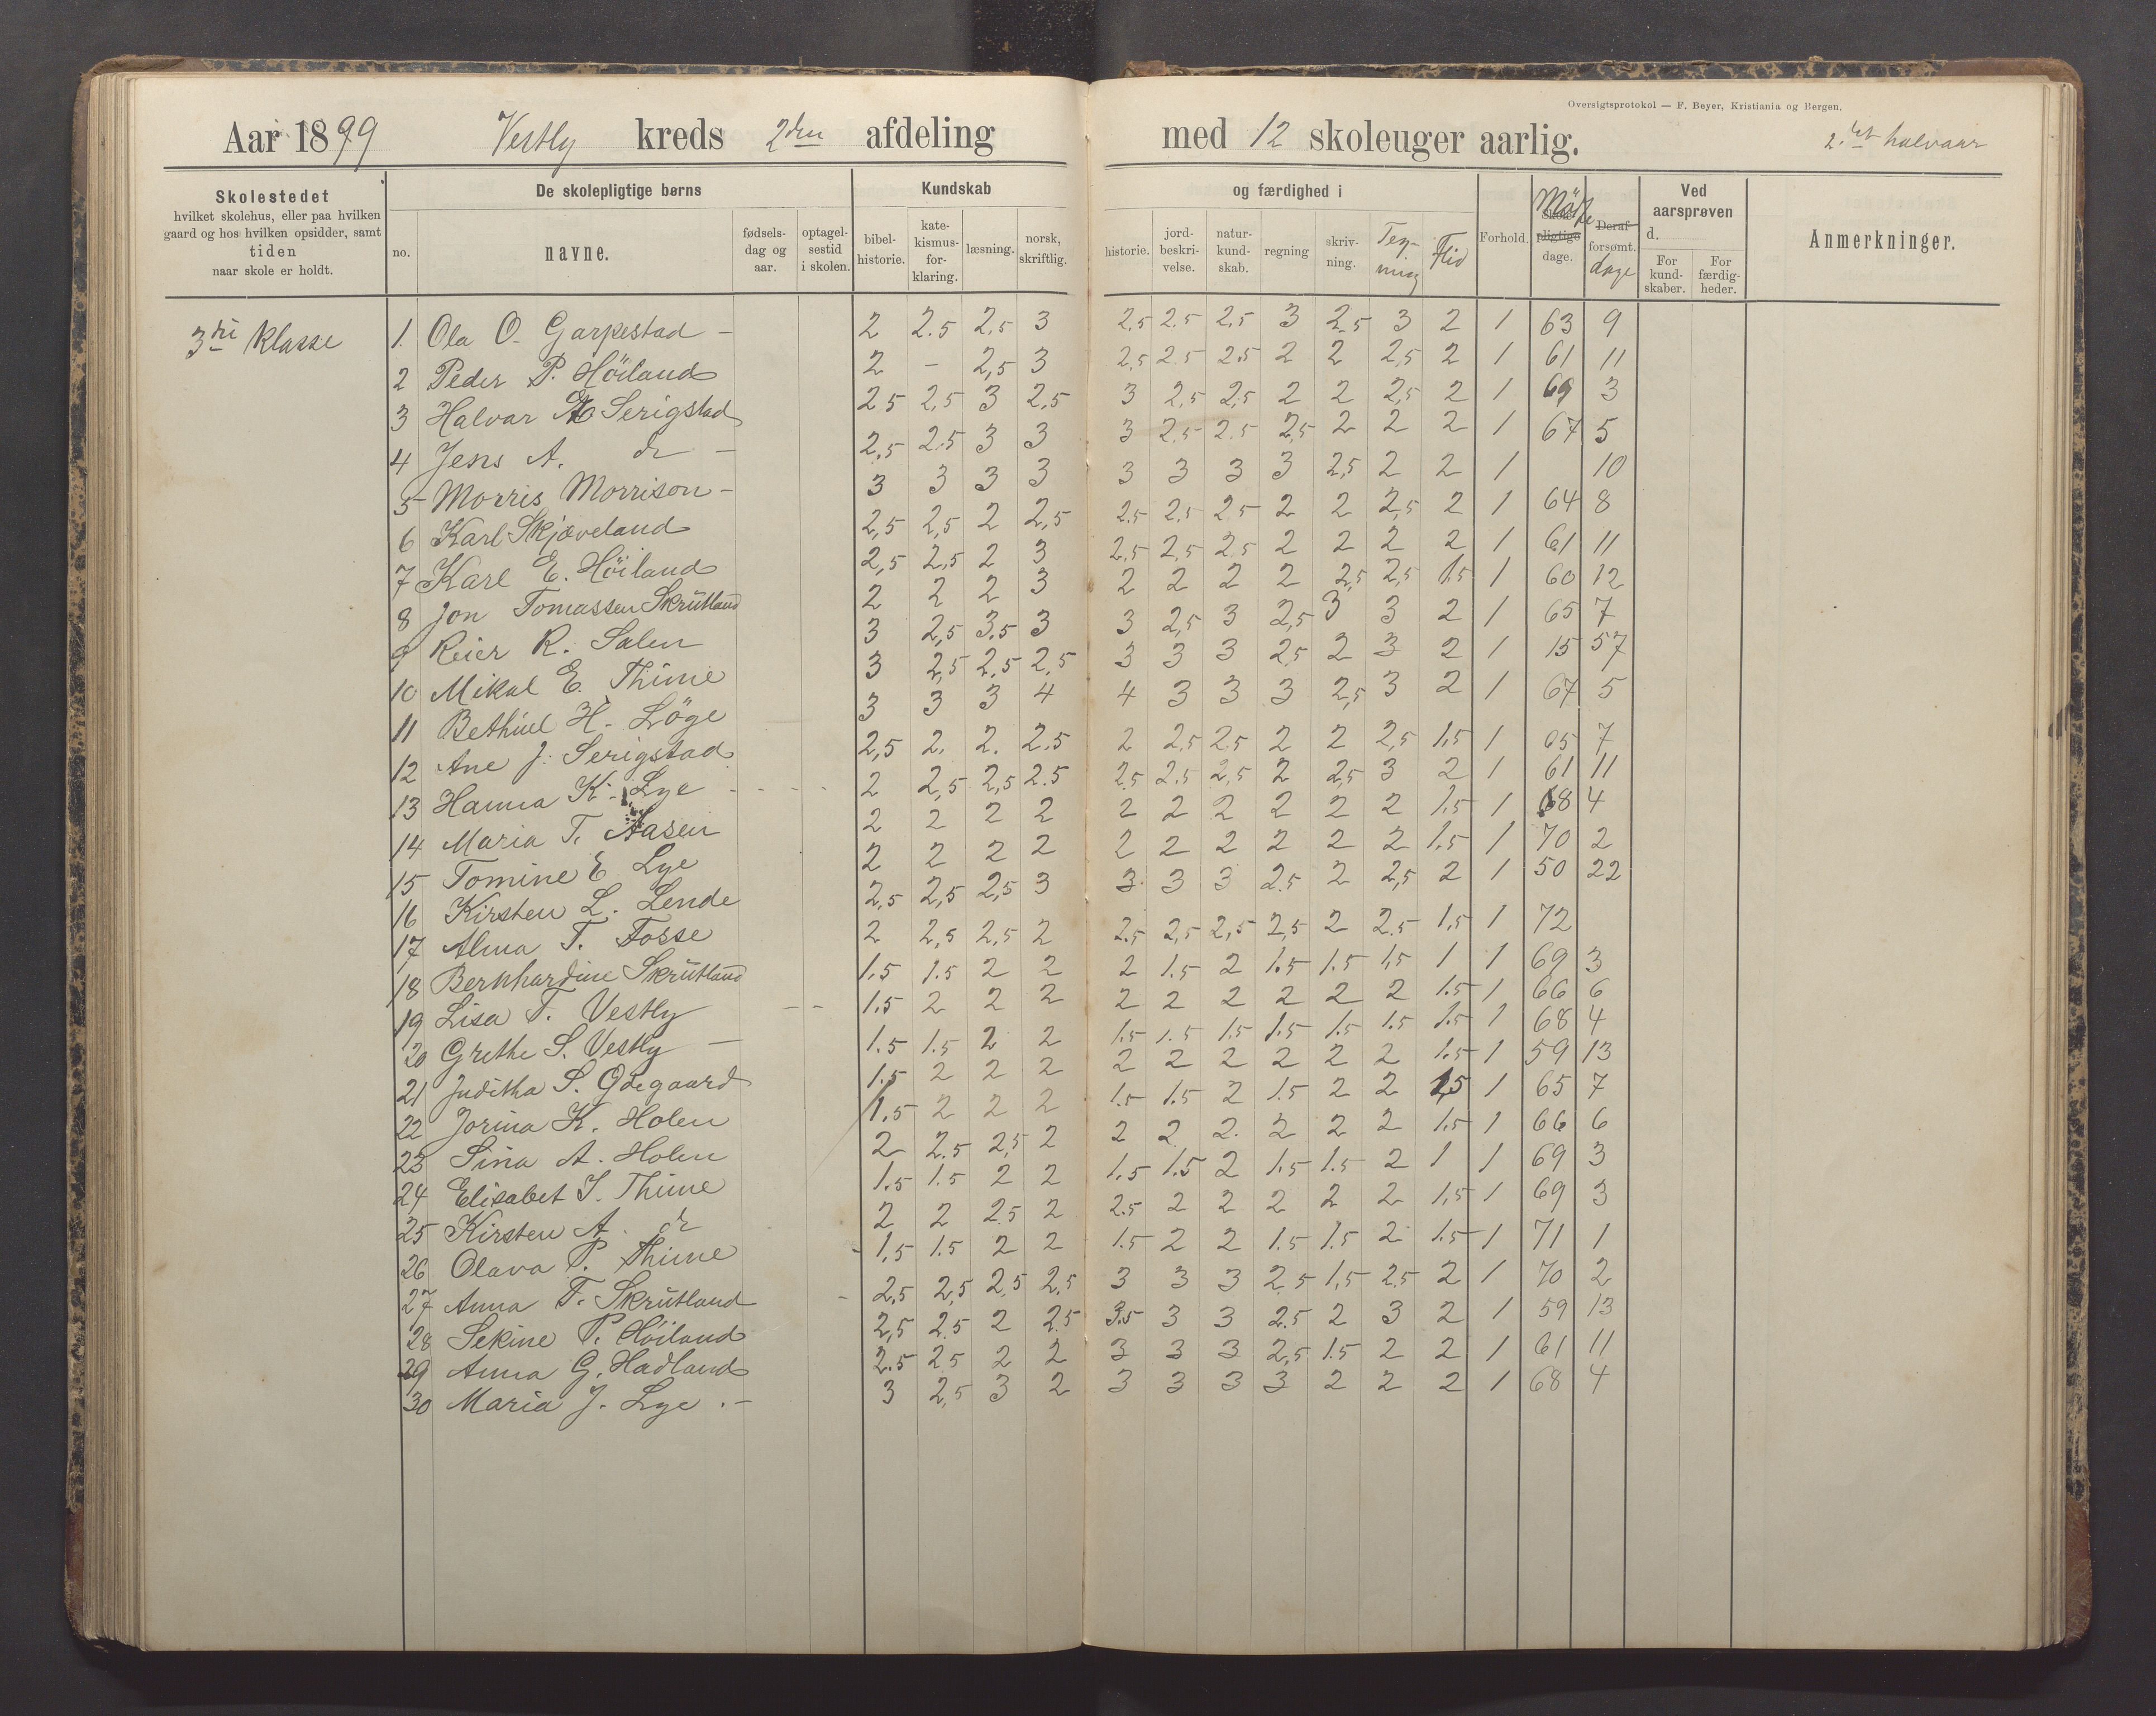 Oversigtsprotokol — F. Beyer, Kristiania og Bergen.
Aar 1899 Vestly kreds 2den afdeling med 12 skoleuger aarlig. 2.det halvaar
Skolestedet
hvilket skolehus, eller paa hvilken
gaard og hos hvilken opsidder, samt
tiden
naar skole er holdt.
De skolepligtige børns
no. navne. fødsels-dag og aar. optagel-sestid i skolen.
Kundskab og færdighed i
bibel-historie. kate-kismus-for-klaring. læsning. norsk, skriftlig. historie. jord-beskri-velse. natur-kund-skab. regning skriv-ning. Teg-ning Flid
Forhold. Møde skole-pligtige dage. Deraf forsømt. dage
Ved aarsprøven d.
For kund-skaber. For færdig-heder.
Anmerkninger.
3die Klasse
1. Ola O. Garpestad – 2 2.5 2,5 3 2,5 2.5 2,5 3 2,5 3 2 1 63 9
2 Peder P. Höiland 2 – 2,5 3 2,5 2.5 2.5 2 2 2,5 2 1 61 11
3 Halvar A Serigstad 2.5 2,5 3 2,5 3 2,5 2,5 2 2 2,5 2 1 69 3
4 Jens A. do – 2,5 2.5 3 3 3 2.5 2.5 2,5 2 2 2 1 67 5
5 Morris Morrison – 3 3 3 3 3 3 3 3 2,5 2 2 1 10
6 Karl Skjæveland 2,5 2,5 2 2,5 2.5 2.5 2.5 2 2 2,5 2 1 64 8
7 Karl E. Höiland 2,5 2,5 2 3 2,5 2,5 2,5 2 2 2 2 1 61 11
8 Jon Tomassen Skrütland 2 2 2 3 2 2 2 2 2,5 2,5 1.5 1 60 12
9 Reier R. Salen 3 2,5 3.5 3 3 2,5 3 2,5 3 3 2 1 65 7
10 Mikal E. Thime 3 2,5 2,5 2,5 3 3 3 2,5 2 3 2 1 15 57
11 Bethuel H. Löge 3 3 3 4 4 3 3 3 2,5 3 2 1 67 5
12 Ane J. Serigstad 2,5 2. 2. 2.5 2 2,5 2.5 2 2 2,5 1.5 1 65 7
13 Hanna K. Lye 2 2,5 2,5 2.5 2.5 2.5 2,5 2 2,5 3 2 1 61 11
14 Maria T. Aasen 2 2 2 2 2 2 2 2 2 2 1,5 1 68 4
15 Tomine E Lye 2 2 2 2 2 2 2 2 2 2 1.5 1 70 2
16 Kirsten L. Lende 2,5 2,5 2,5 3 3 3 3 2.5 2 2,5 2 1 50 22
17 Alma T. Fosse 2 2,5 2,5 2 2.5 2,5 2,5 2,5 2 2.5 1.5 1 72
18 Bernhardine Skrütland 1.5 1.5 2 2 2 1.5 2 1.5 1.5 1,5 1 1 69 3
19 Lisa T. Vestly 1.5 2 2 2 2 2 2 2 2 2 1.5 1 66 6
20 Grethe S. Vestly – 1.5 1.5 2 2 1.5 1.5 1.5 1.5 1.5 1.5 1.5 1 68 4
21 Juditha S. Ödegaard 1.5 2 2 2 2 2 2 2 2 2 1.5 1 59 13
22 Jorina K. Holen 1.5 2 2 2 1.5 1.5 2 1.5 2 2 1,5 1 65 7
23 Sina A. Holen 2 2.5 2,5 2 2 2 2. 2 2 2 1.5 1 66 6
24 Elisabet S. Thime 1.5 1.5 2 2 1.5 1.5 2 1.5 1.5 2 1 1 69 3
25 Kirsten A. do 2 2 2.5 2 2.5 2 2 2 2 2 1,5 1 69 3
26 Olava P. Thime 1,5 1.5 2 2 1.5 2 2 1.5 1.5 2 1.5 1 71 1
27 Anna T. Skrütland 2,5 2,5 2,5 2,5 3 3 3 2,5 1,5 2.5 2 1 70 2
28 Sekine P. Höiland 2,5 2.5 2 2.5 3.5 3 3 2.5 2 3 2 1 59 13
29 Anna G. Hadland 2.5 2.5 2 2 3 3 3 2,5 1.5 2 2 1 61 11
30 Maria J. Lye . – 3 2,5 3 2 3 3 3 3 2 2 2 1 68 4